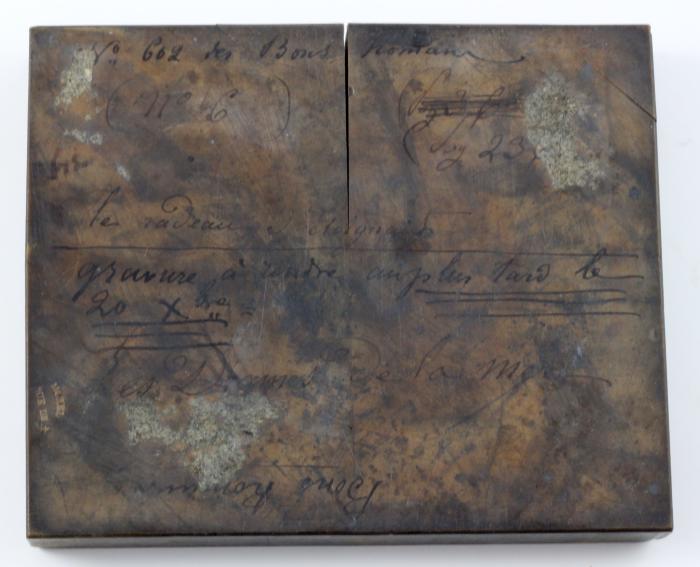 No 602 des Bons Romans
(No 6)
(pag 237
le radeau s'éloignait
gravure à rendre au plus tard le
20 Xbre =
Les Drames de la Mer
Bons Romans